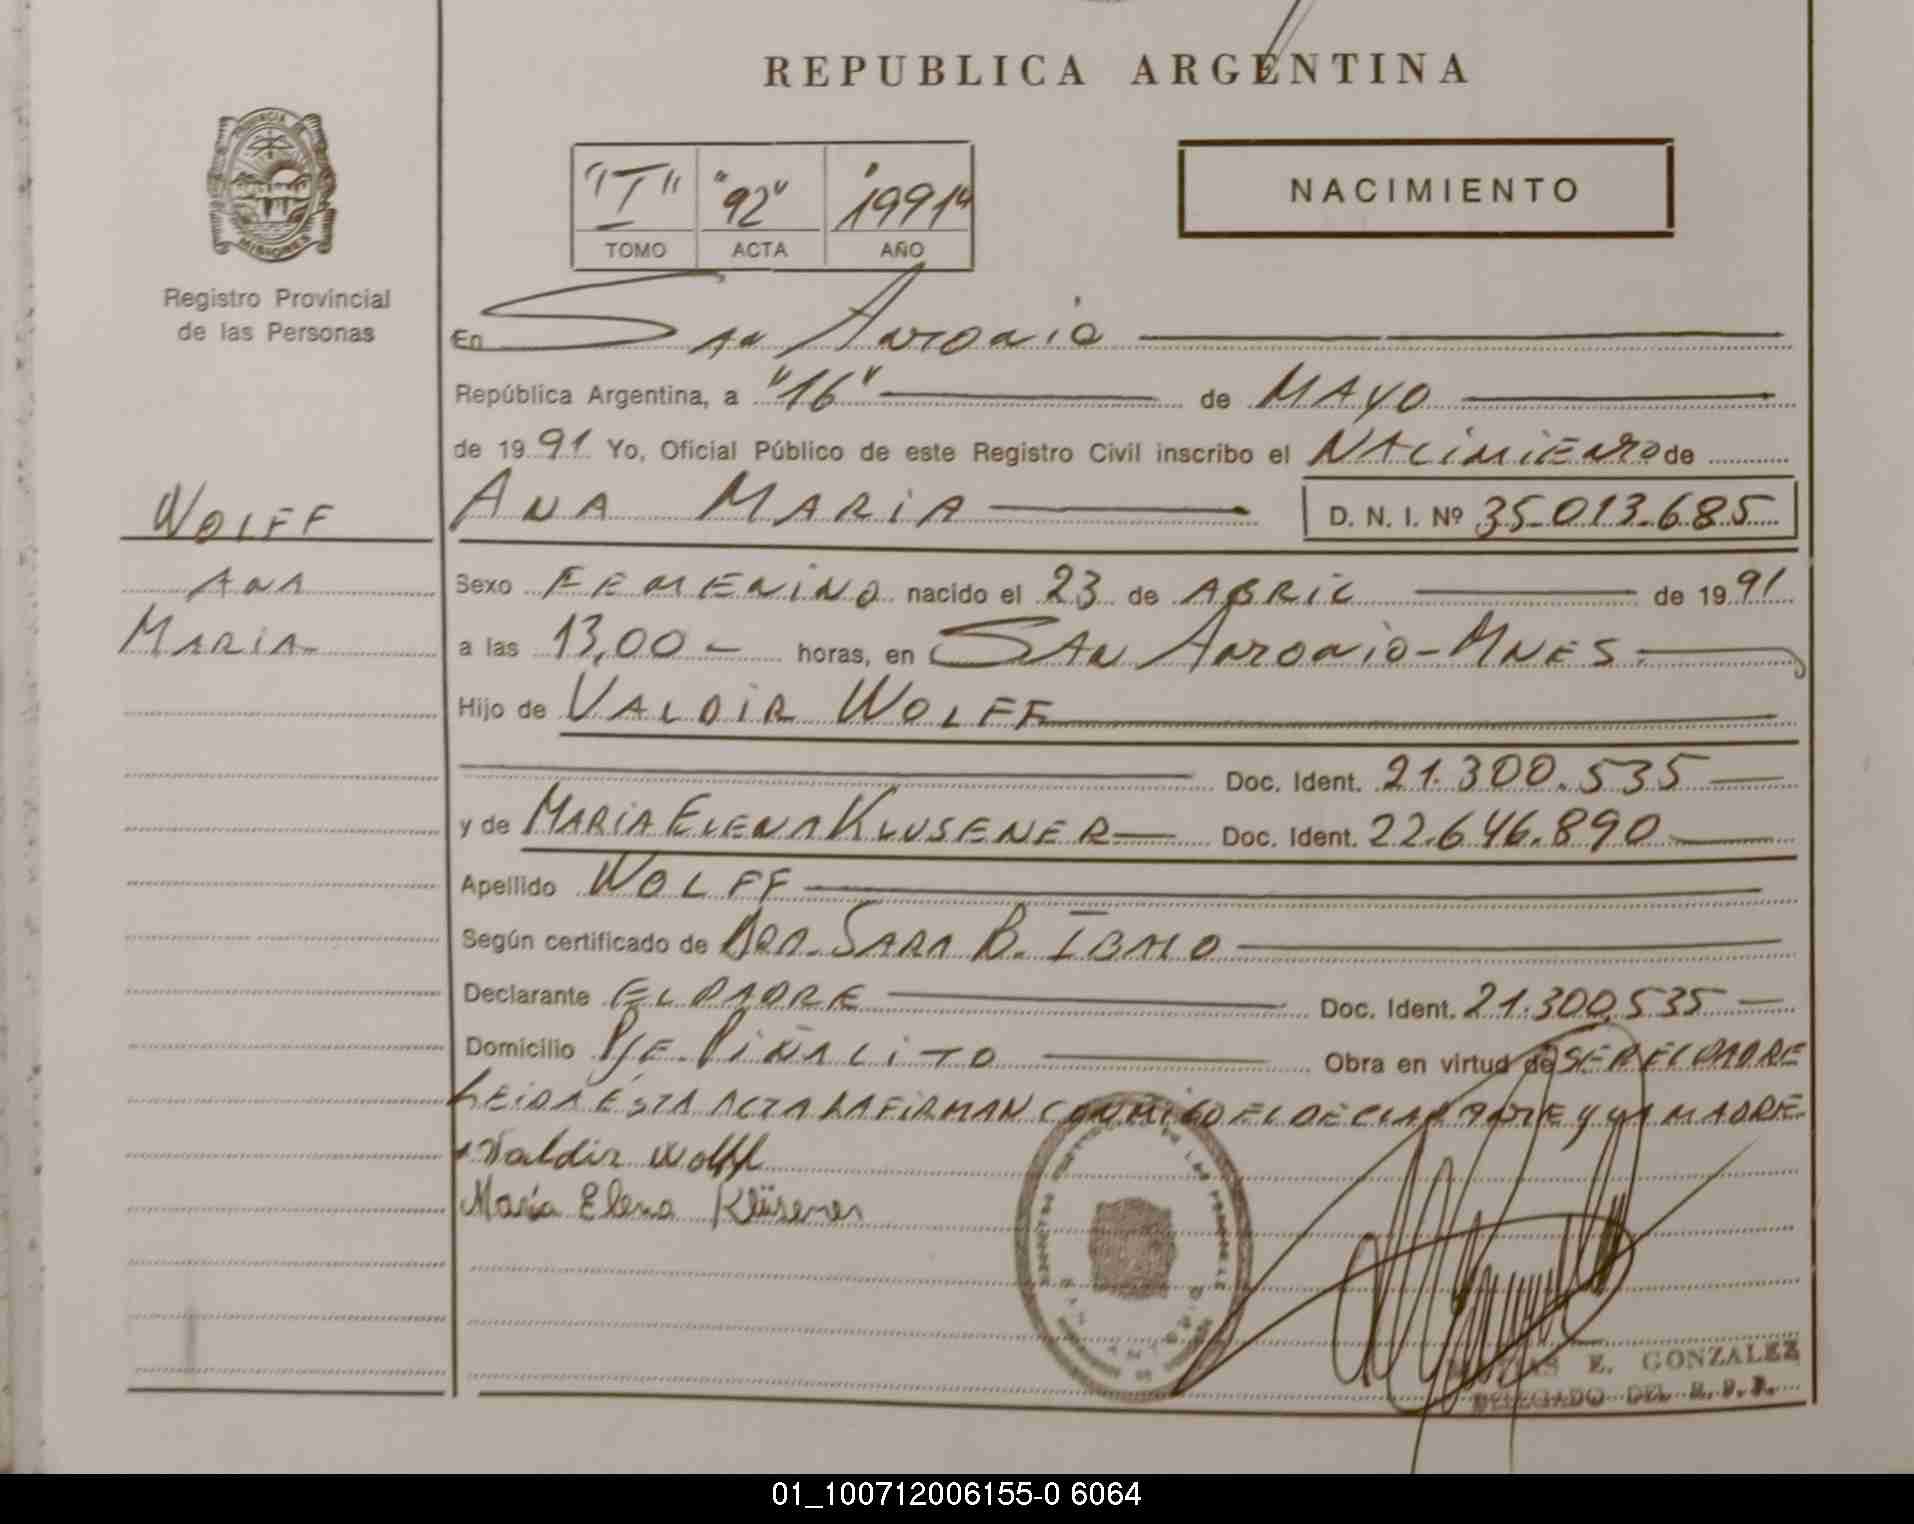 REPUBLICA ARGENTINA
PROVINCIA DE MISIONES
Registro Provincial
de las Personas
"I" "92" "1991"
TOMO ACTA AÑO
NACIMIENTO
En San Antonio
República Argentina, a "16" de MAYO
de 1991 Yo, Oficial Público de este Registro Civil inscribo el NACIMIENTO de
WOLFF
ANA
MARIA
ANA MARIA D. N. I. Nº 35.013.685
Sexo FEMENINO nacido el 23 de ABRIL de 1991
a las 13,00 horas, en SAN ANTONIO-MNES.
Hijo de VALDIR WOLFF
Doc. Ident. 21.300.535
y de MARIA ELENA KLUSENER Doc. Ident. 22.646.890
Apellido WOLFF
Según certificado de DRA. SARA B.
Declarante EL PADRE Doc. Ident. 21.300.535
Domicilio PJE. PIÑALITO Obra en virtud de SER EL PADRE
LEIDA ÉSTA ACTA LA FIRMAN CONMIGO EL DECLARANTE Y LA MADRE.
Valdir Wolff
María Elena Klüsener
E. GONZALEZ
DELEGADO DEL R. P. P.
01_100712006155-0 6064